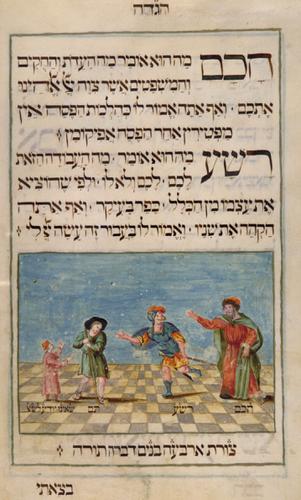 הגדה
חכם מה הוא אומר מה העדות והחקים
והמשפטים אשר צוה יי אלהינו
אתכם · ואף אתה אמור לו כהלכות הפסח אין
מפטירין אחר הפסח אפיקומן
רשע מה הוא אומר · מה העבודה הזאת
לכם · לכם ולא לו · ולפי שהוציא
את עצמו מן הכלל · כפר בעיקר · ואף אתה
הקהה את שניו · ואמור לו בעבור זה עשה יי לי
חכם
רשע
תם
שאינו יודע לשאול
צורת ארבעה בנים דברה תורה
בצאתי